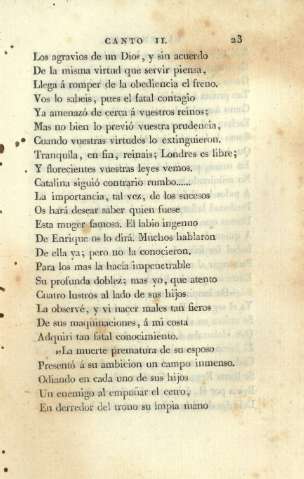 CANTO II. 23
Los agravios de un Dios, y sin acuerdo
De la misma virtud que servir piensa,
Llega á romper de la obediencia el freno.
Vos lo sabeis, pues el fatal contagio
Ya amenazó de cerca á vuestros reinos;
Mas no bien lo previó vuestra prudencia,
Cuando vuestras virtudes lo extinguieron.
Tranquila, en fin, reinais; Londres es libre;
Y florecientes vuestras leyes vemos.
Catalina siguió contrario rumbo......
La importancia, tal vez, de los sucesos
Os hará desear saber quien fuese
Esta muger famosa. El labio ingenuo
De Enrique os lo dirá. Muchos hablaron
De ella ya; pero no la conocieron,
Para los mas la hacía impenetrable
Su profunda doblez; mas yo, que atento
Cuatro lustros al lado de sus hijos
La observé, y vi nacer males tan fieros
De sus maquinaciones, á mi costa
Adquirí tan fatal conocimiento.
»La muerte prematura de su esposo
Presentó á su ambicion un campo inmenso.
Odiando en cada uno de sus hijos
Un enemigo al empuñar el cetro,
En derredor del trono su impia mano